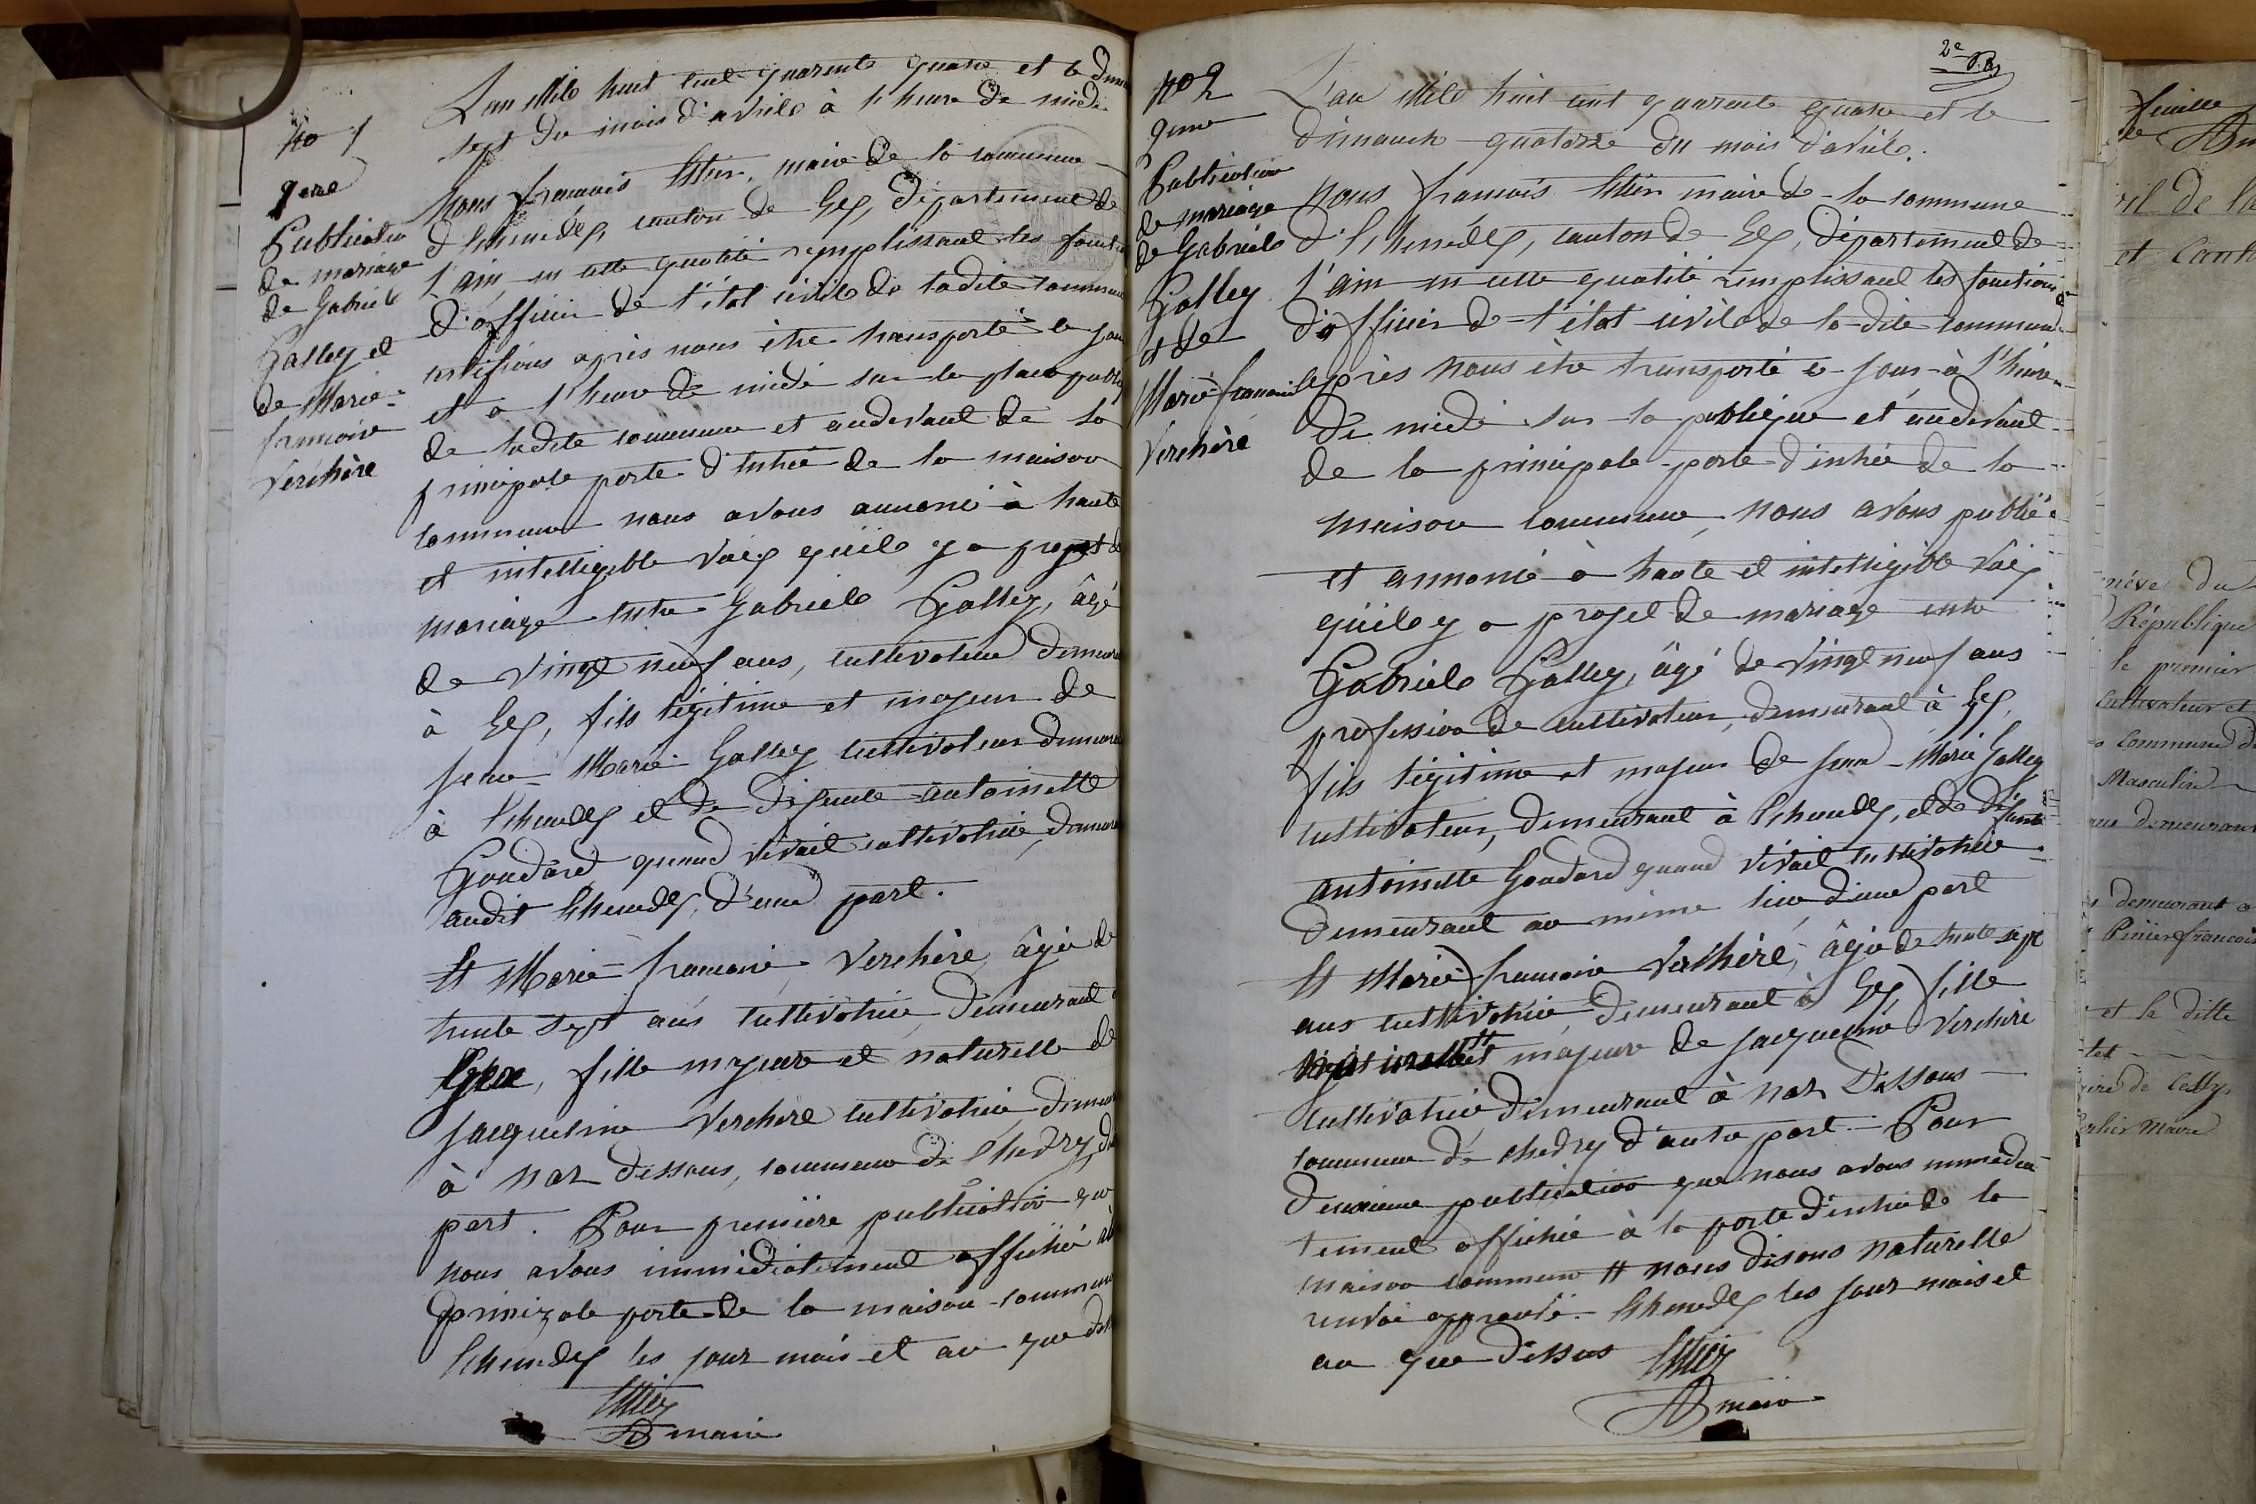 No 1
1ere
Publication
de mariage
de Gabriel
Galley et
de Marie-
francoise
Verchère
L'an Mil huit cent quarente quatre et le dim
sept du mois d'avril à l'heure de midi
Nous francois maire de la commune
d'Echenevex, canton de Gex, département de
l'ain en cette qualité remplissant les foncti
d'officier de l'état civil de ladite commune
certifions après nous être transporté ce jou
et à l'heure de midi sur la place publiq
de ladite commune et audevant de la
principale porte d'entrée de la maison
commune nous avons annoncé à haute
et intelligible voix qu'il y a projet d
mariage entre Gabriel Galley, âgé
de vingt neuf ans, cultivateur demeura
à Gex, fils légitime et majeur de
Jean-Marie Galley cultivateur demeura
à Echenevex et de défunte antoinette
Goudard quand vivait cultivatrice, demeura
audit Echenevex, d'une part.
Et Marie-francoise Verchère, âgée de
trente sept ans cultivatrice, demeurant à
Gex, fille majeure et naturelle de
Jacqueline Verchère cultivatrice, demeu
à Naz dessous, commune de Chevry, d'
part. Pour première publication que
nous avons immédiatement affichée à la
principale porte de la maison commune
Echenevex les jour mois et an que de
maire
2e
No 2
2eme
Publication
de mariage
de Gabriel
Galley
et de
Marie-francoise
Verchère
L'an Mil huit cent quarente quatre et le
dimanche quatorze du mois d'avril.
Nous francois maire de la commune
d'Echenevex, canton de Gex, département de
l'ain en cette qualité remplissant les fonctions
d'officier de l'état civil de la dite commune
après nous être transporté ce jour à l'heure
de midi sur la publique et audevant
de la principale porte d'entrée de la
maison commune, nous avons publié
et annoncé à haute et intelligible voix
qu'il y a projet de mariage entre
Gabriel Galley, âgé de vingt neuf ans
profession de cultivateur, demeurant à Gex,
fils légitime et majeur de Jean-Marie Galley
cultivateur, demeurant à Echenevex, et de défunte
antoinette Goudard quand vivait cultivatrice
demeurant au même lieu d'une part
Et Marie-francoise Verchère, âgée de trente sept
ans cultivatrice, demeurant à Gex, fille
# majeure de Jacqueline Verchère
cultivatrice, demeurant à Naz Dessous
commune de chevry d'autre part. Pour
deuxieme publication que nous avons immédia
tement affichée à la porte d'entrée de la
maison commune # nous disons naturelle
renvoi approuvé. Echenevex les jour mois et
an que dessus
maire
feuille
de
il de la
et Cant
nève du
République
le premier
cultivateur et
commune de
Masculin
demeurant
demeurant a
francois
et la ditte
maire de Cessy.
maire